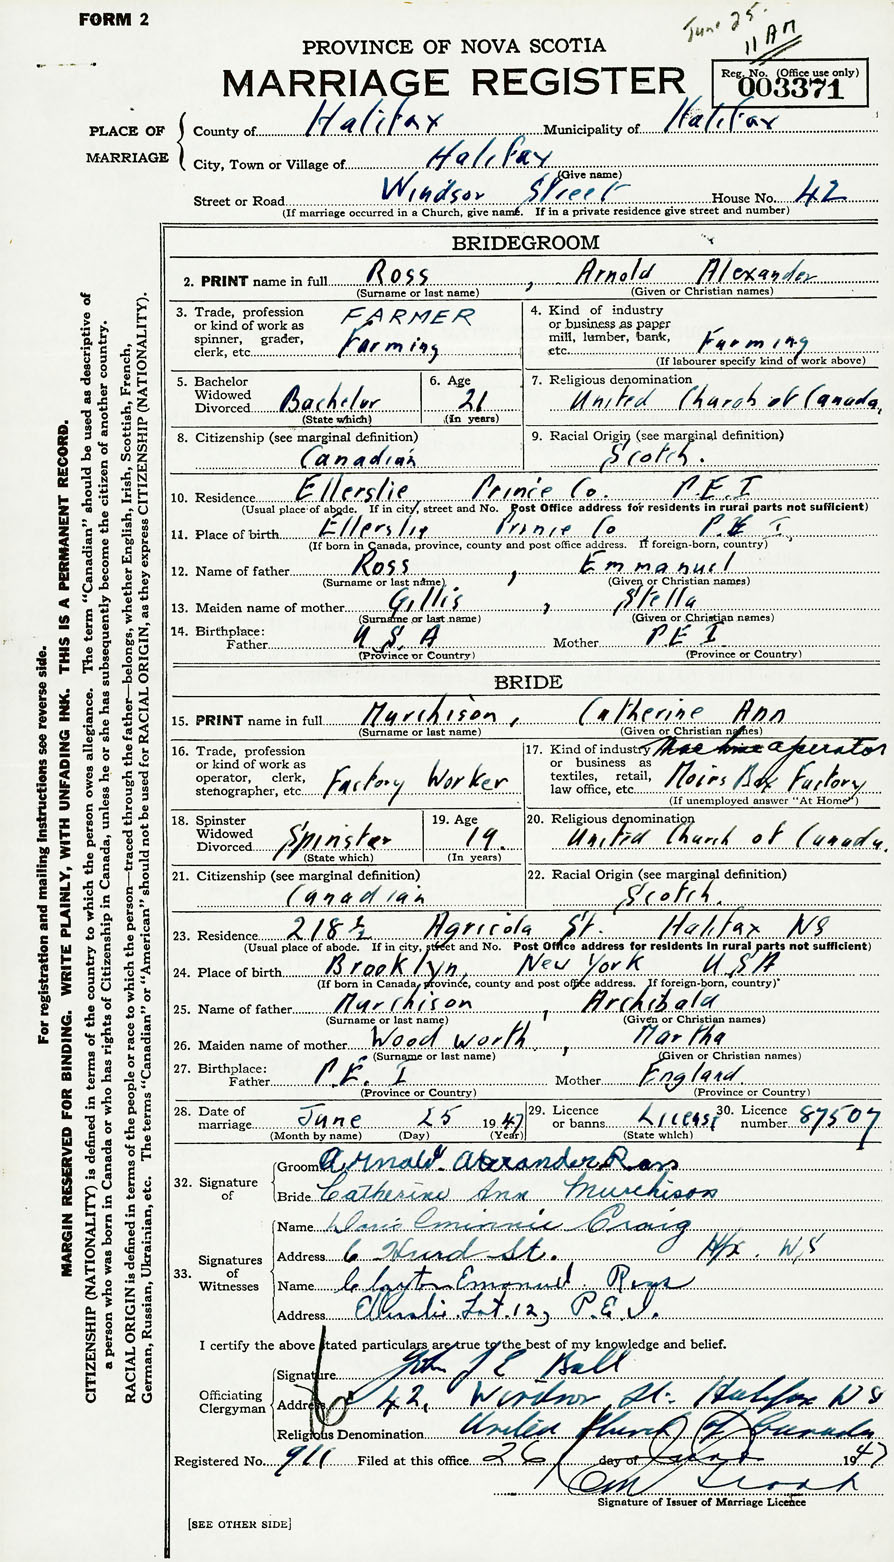 FORM 2
June 25.
11 AM
PROVINCE OF NOVA SCOTIA
MARRIAGE REGISTER
Reg. No. (Office use only)
003371
PLACE OF MARRIAGE
County of Halifax Municipality of Halifax
City, Town or Village of Halifax
(Give name)
Street or Road Windsor Street House No. 42
(If marriage occurred in a Church, give name. If in a private residence give street and number)
BRIDEGROOM
2. PRINT name in full Ross, Arnold Alexander
(Surname or last name) (Given or Christian names)
3. Trade, profession or kind of work as spinner, grader, clerk, etc. FARMER Farming
4. Kind of industry or business as paper mill, lumber, bank, etc. Farming
(If labourer specify kind of work above)
5. Bachelor Widowed Divorced Bachelor
(State which)
6. Age 21
(In years)
7. Religious denomination
United Church of Canada,
8. Citizenship (see marginal definition)
Canadian
9. Racial Origin (see marginal definition)
Scotch.
10. Residence Ellerslie Prince Co. P.E.I
(Usual place of abode. If in city, street and No. Post Office address for residents in rural parts not sufficient)
11. Place of birth Ellerslie Prince Co P.E I,
(If born in Canada, province, county and post office address. If foreign-born, country)
12. Name of father Ross, Emmanuel
(Surname or last name) (Given or Christian names)
13. Maiden name of mother Gillis, Stella
(Surname or last name) (Given or Christian names)
14. Birthplace:
Father U.S.A Mother P.E I
(Province or Country) (Province or Country)
BRIDE
15. PRINT name in full Murchison, Catherine Ann
(Surname or last name) (Given or Christian names)
16. Trade, profession or kind of work as operator, clerk, stenographer, etc. Factory Worker
17. Kind of industry or business as textiles, retail, law office, etc. operator Moirs Box Factory
(If unemployed answer "At Home")
18. Spinster Widowed Divorced Spinster
(State which)
19. Age 19.
(In years)
20. Religious denomination
United Church of Canada.
21. Citizenship (see marginal definition)
Canadian
22. Racial Origin (see marginal definition)
Scotch.
23. Residence 218½ Agricola St. Halifax NS
(Usual place of abode. If in city, street and No. Post Office address for residents in rural parts not sufficient)
24. Place of birth Brooklyn, New York USA
(If born in Canada, province, county and post office address. If foreign-born, country)
25. Name of father Murchison, Archibald
(Surname or last name) (Given or Christian names)
26. Maiden name of mother Wood worth, Martha
(Surname or last name) (Given or Christian names)
27. Birthplace:
Father P.E. I Mother England.
(Province or Country) (Province or Country)
28. Date of marriage June 25 1947
(Month by name) (Day) (Year)
29. Licence or banns License
(State which)
30. Licence number 87507
32. Signature of
Groom Arnold Alexander Ross
Bride Catherine Ann Murchison
33. Signatures of Witnesses
Name Craig
Address 6 Hurd St. Hfx. N,S
Name Clayton Emanuel Ross
Address Ellerslie Lot.12, P.E.I.
I certify the above stated particulars are true to the best of my knowledge and belief.
Officiating Clergyman
Signature John Ball
Address 42, Windsor St. Halifax NS
Religious Denomination United Church of Canada
Registered No. 911 Filed at this office 26 day of June 1947
Signature of Issuer of Marriage Licence
[SEE OTHER SIDE]
For registration and mailing instructions see reverse side.
MARGIN RESERVED FOR BINDING. WRITE PLAINLY, WITH UNFADING INK. THIS IS A PERMANENT RECORD.
CITIZENSHIP (NATIONALITY) is defined in terms of the country to which the person owes allegiance. The term "Canadian" should be used as descriptive of
a person who was born in Canada or who has rights of Citizenship in Canada, unless he or she has subsequently become the citizen of another country.
RACIAL ORIGIN is defined in terms of the people or race to which the person—traced through the father—belongs, whether English, Irish, Scottish, French,
German, Russian, Ukrainian, etc. The terms "Canadian" or "American" should not be used for RACIAL ORIGIN, as they express CITIZENSHIP (NATIONALITY).